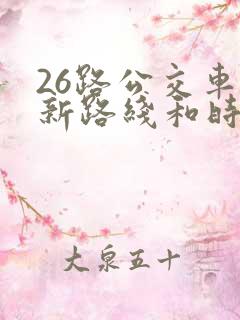 26路公交车
新路线和时
大泉五十